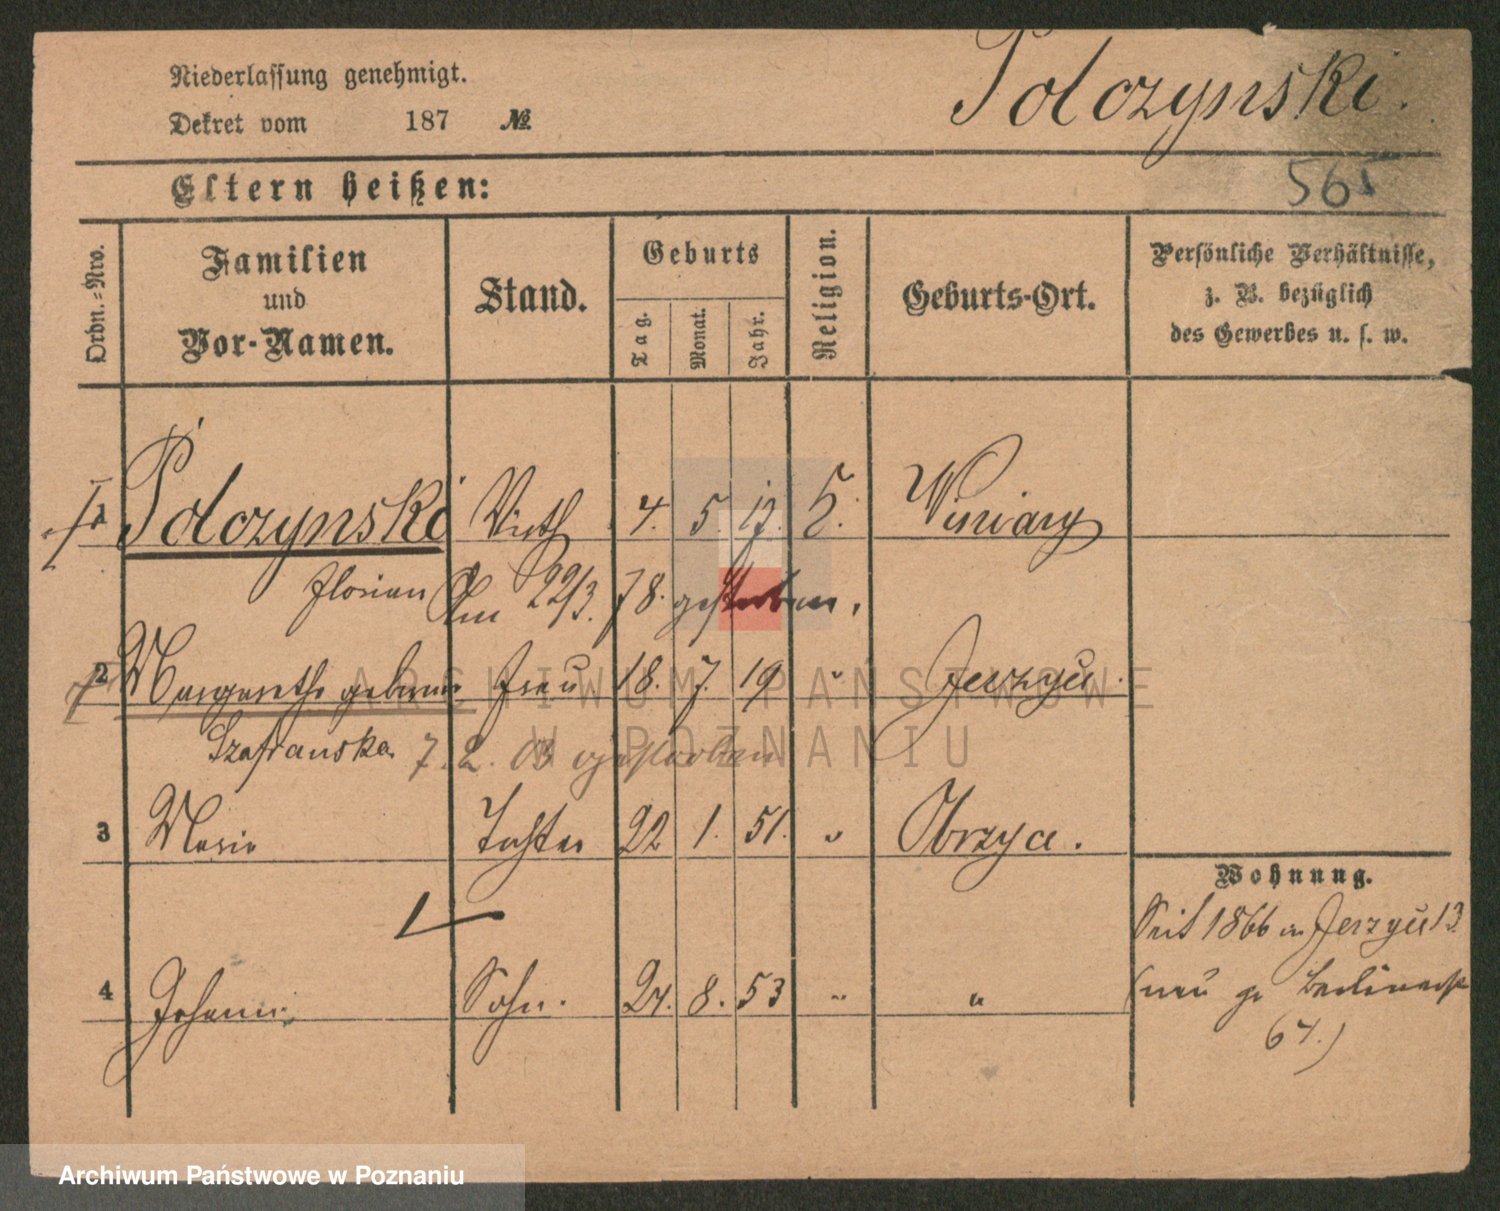 Niederlassung genehmigt.
Dekret vom 187 №
Polczynski.
565
Eltern heißen:
Ordn.-Nro.
Familien und Vor-Namen.
Stand.
Geburts
Tag.
Monat.
Jahr.
Religion.
Geburts-Ort.
Persönliche Verhältnisse,
z. B. bezüglich
des Gewerbes u. s. w.
1 Polczynski Wirth 4. 5. 17. Winiary
Florian Am 22/3. 78. gestorben.
2 Margarethe geborene Frau 18. 7. 19 " Jerzyce.
Szafranska 7. 2. 03 gestorben
3 Marie Tochter 22 1. 51. " Obrzyca.
Wohnung.
Seit 1866 in Jerzyce 13
4 Johann Sohn. 24. 8. 53 " "
(neu Berlinerst
67.)
ARCHIWUM PAŃSTWOWE
W POZNANIU
Archiwum Państwowe w Poznaniu